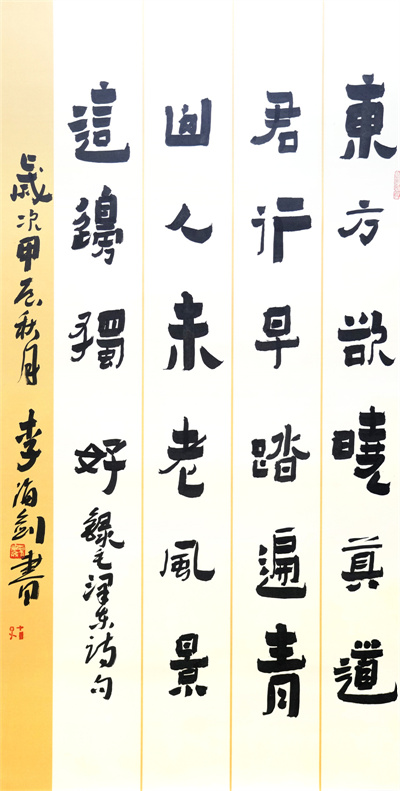 東方欲曉莫道
君行早踏遍青
山人未老風景
這邊獨好 録毛澤东诗句
歲次甲辰秋月 李海剑書